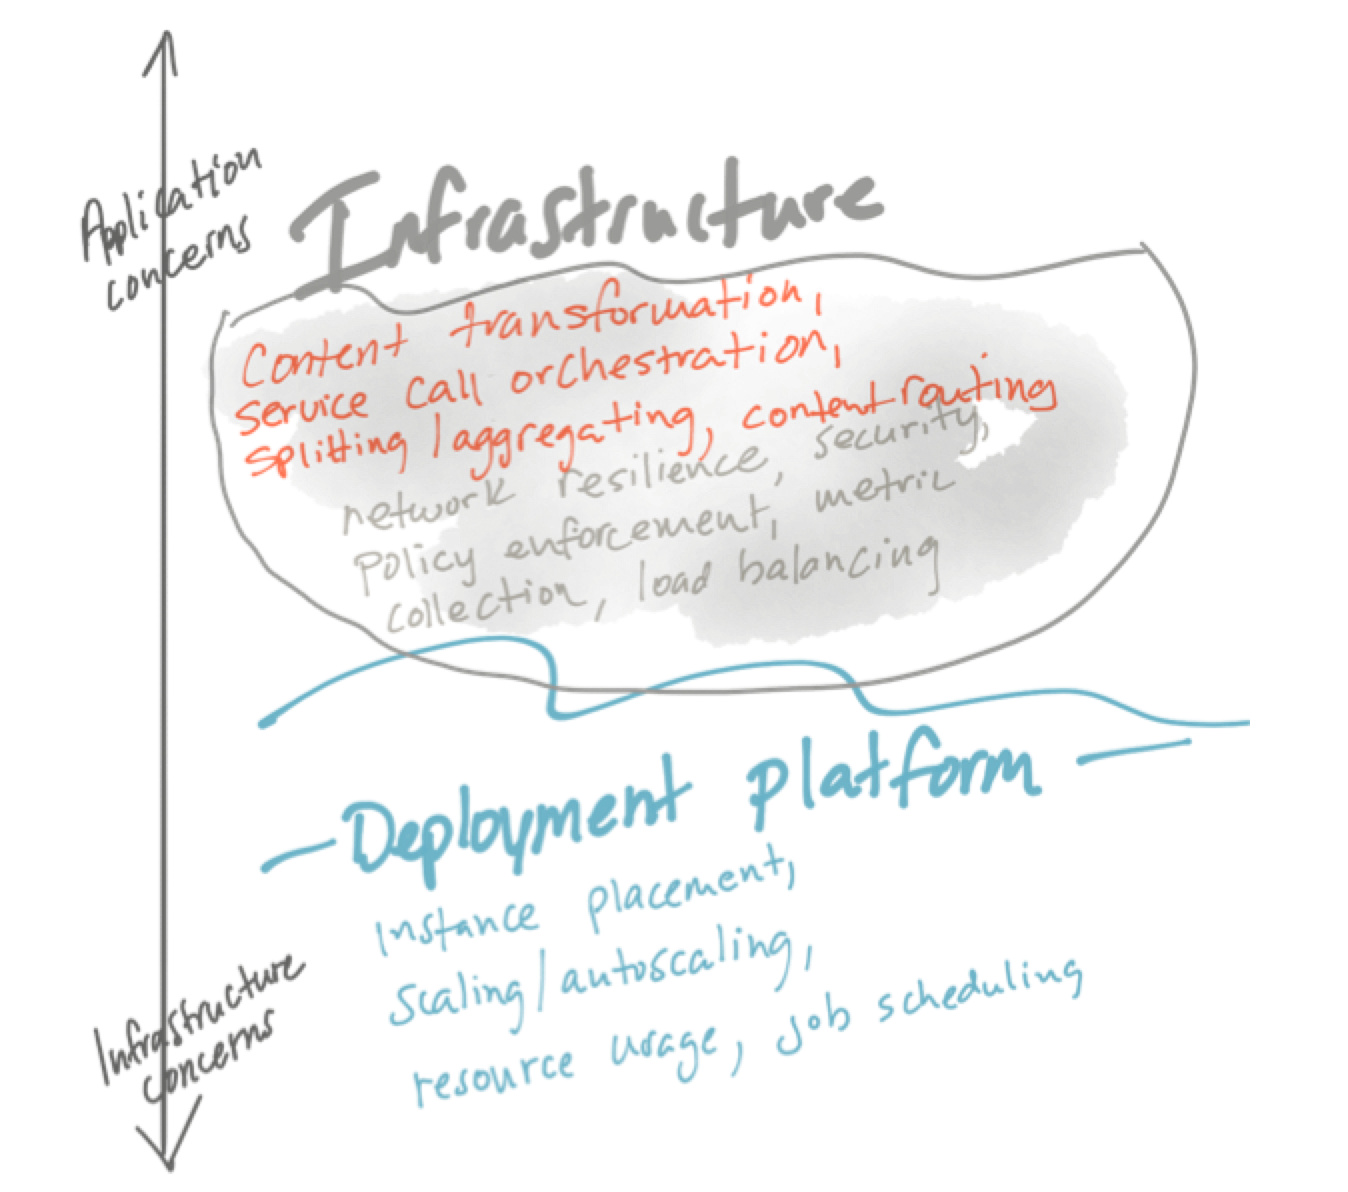 Application
concerns
Infrastructure
Content transformation,
service call orchestration,
splitting/aggregating, content routing
network resilience, security,
policy enforcement, metric
collection, load balancing
Deployment platform
instance placement,
scaling/autoscaling,
resource usage, job scheduling
Infrastructure
concerns